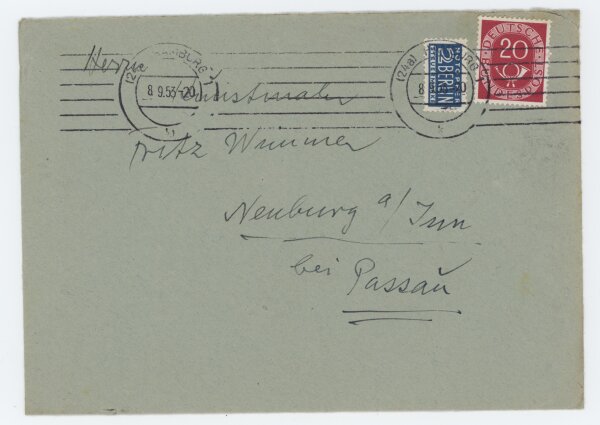 Herrn
Kunstmaler
Fritz Wimmer
Neuburg a/Inn
bei Passau
(24a) HAMBURG
8.9.53-20
(24a) HAMBURG
8
NOTOPFER
2 BERLIN
STEUERMARKE
20
DEUTSCHE
BUNDESPOST